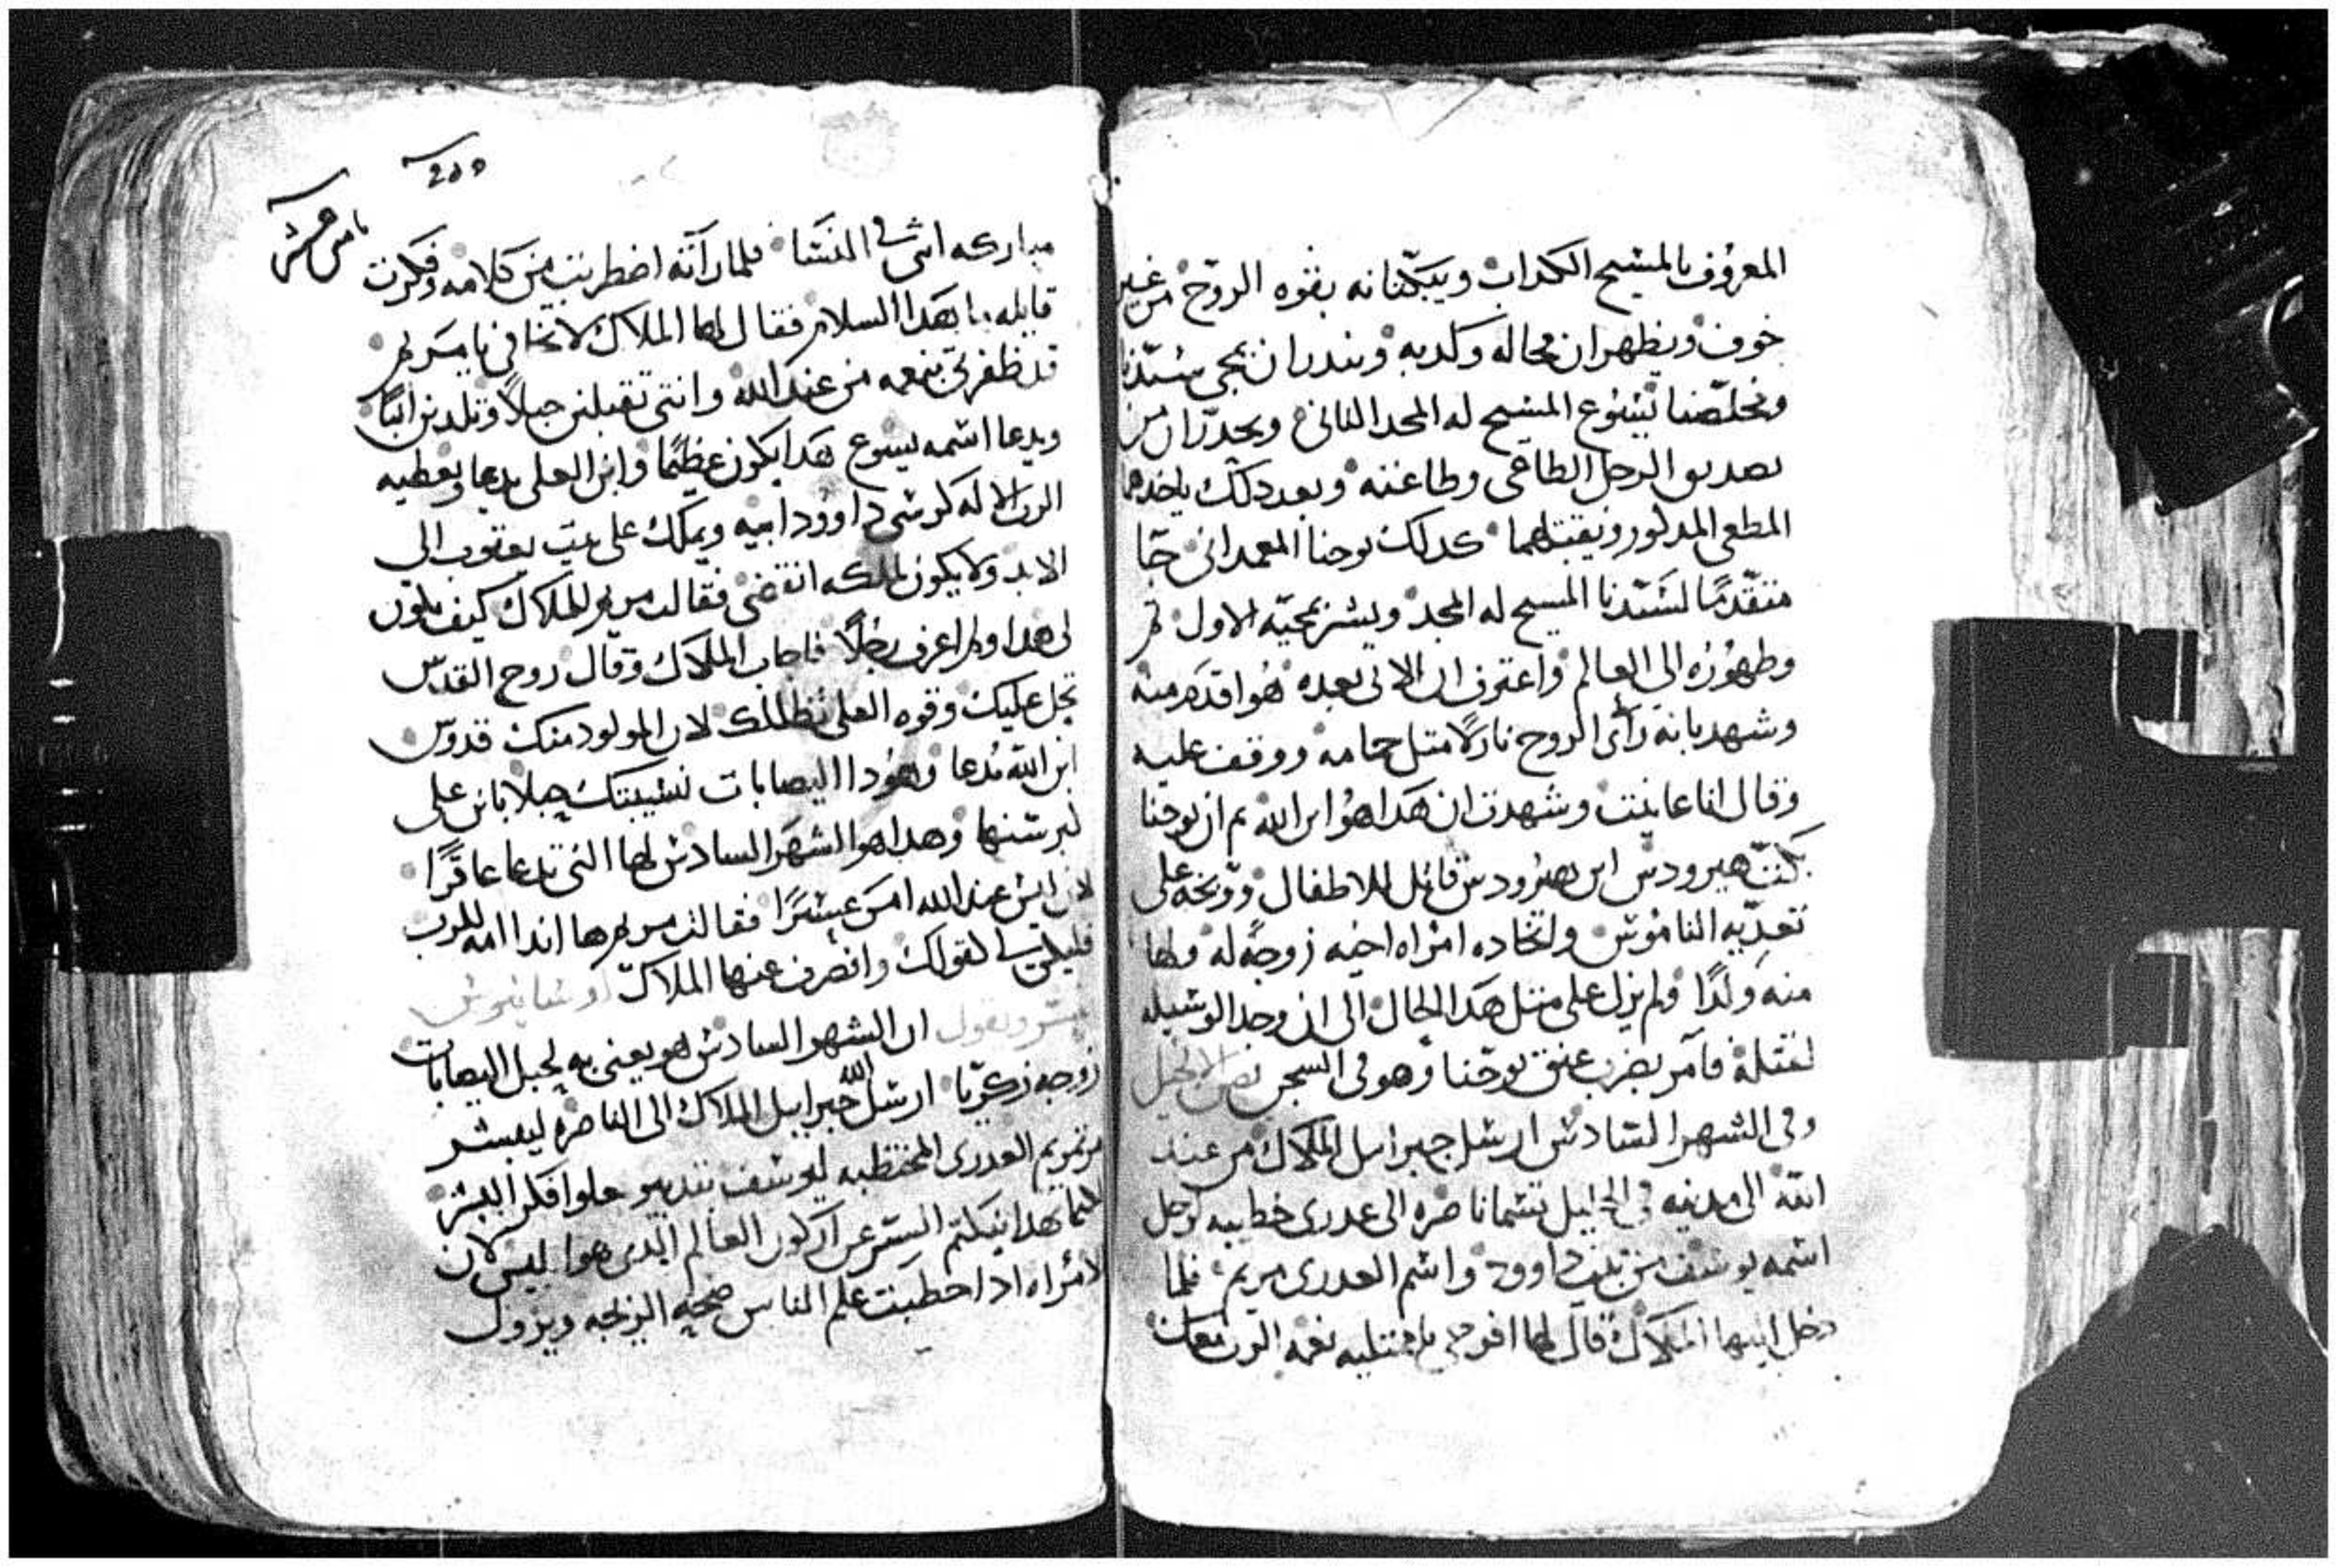 المعروف بالمسيح الكداب ويبكتانه بقوه الروح من غير
خوف ويظهران محاله وكدبه ويندران بمجي سيدنا
ومخلصنا يسوع المسيح له المجد الثاني ويحدران من
تصديق الرجل الطاغي وطاعته وبعد دلك ياخدهما
المطغي المدكور ويقتلهما كدلك يوحنا المعمداني جا
متقدما لسيدنا المسيح له المجد وبشر بمجيه الاول
وظهوره الي العالم واعترف ان الاتي بعده هو اقدم منه
وشهد بانه رأى الروح نازلا متل حمامه ووقف عليه
وقال انا عاينت وشهدت ان هدا هو ابن الله تم ان يوحنا
بكت هيرودس ابن هيرودس قاتل الاطفال ووبخه على
تعديه الناموس واتخاده امراه اخيه زوجه له ولها
منه ولدا ولم يزل على متل هدا الحال الى ان وجد الوسيله
لقتله فآمر بضرب عنق يوحنا وهو في السجن نص الانجيل
وفي الشهر السادس ارسل جبراييل الملاك من عند
الله الى مدينه في الجليل تسما ناصره الى عدرى خطيبه لرجل
اسمه يوسف من بيت داوود واسم العدرى مريم فلما
دخل اليها الملاك قال لها افرحي يا ممتليه نعمه الرب معك
255
مباركه انتي في النسا فلما رآته اضطربت من كلامه وفكرت
قايله ما هدا السلام فقال لها الملاك لا تخافي يا مريم
قد ظفرتي بنعمه من عند الله وانتي تقبلين حبلا وتلدين ابنا
ويدعا اسمه يسوع هدا يكون عظيما وابن العلي يدعا ويعطيه
الرب الاله كرسي داوود ابيه ويملك على بيت يعقوب الى
الابد ولا يكون لملكه انقضى فقالت مريم للملاك كيف يكون
لي هدا ولم اعرف رجلا فاجاب الملاك وقال روح القدس
تحل عليك وقوه العلي تظللك لان المولود منك قدوس
ابن الله يدعا وهودا اليصابات نسيبتك حبلا بابن على
كبر سنها وهدا هو الشهر السادس لها التي تدعا عاقرا
لان ليس عند الله امر عسرا فقالت مريم ها اندا امه للرب
فليكن لي كقولك وانصرف عنها الملاك
ويقول ان الشهر السادس هو يعنى به لحبل اليصابات
زوجه زكريا ارسل الله جبراييل الملاك الى الناصره ليبشر
مرتمريم العدرى المختطبه ليوسف
هدا ينكتم السر عن اركون العالم الدى هوا ابليس لان
الامراه ادا خطبت علم الناس صحه الزيجه ويزول